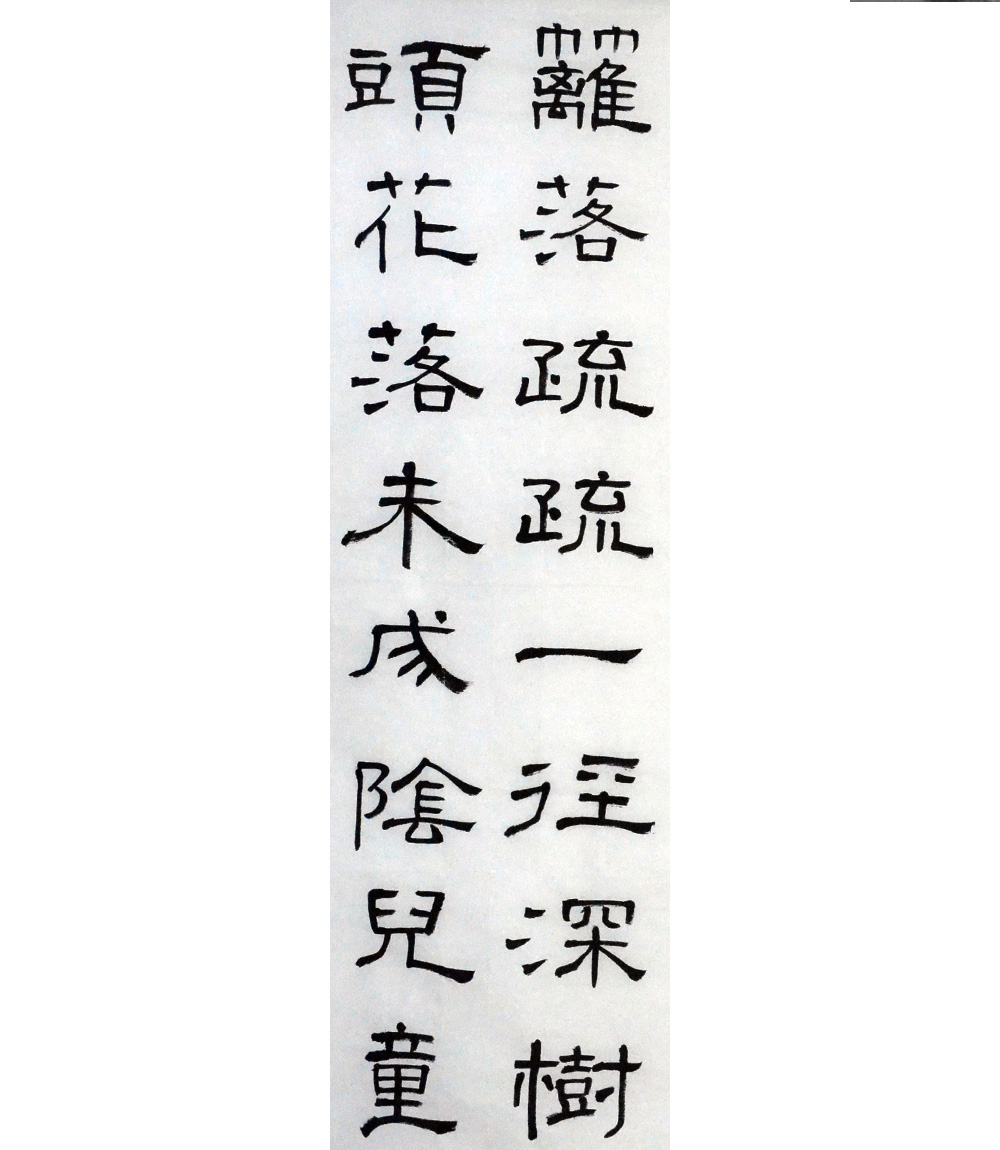 籬落疏疏一徑深樹
頭花落未成陰兒童